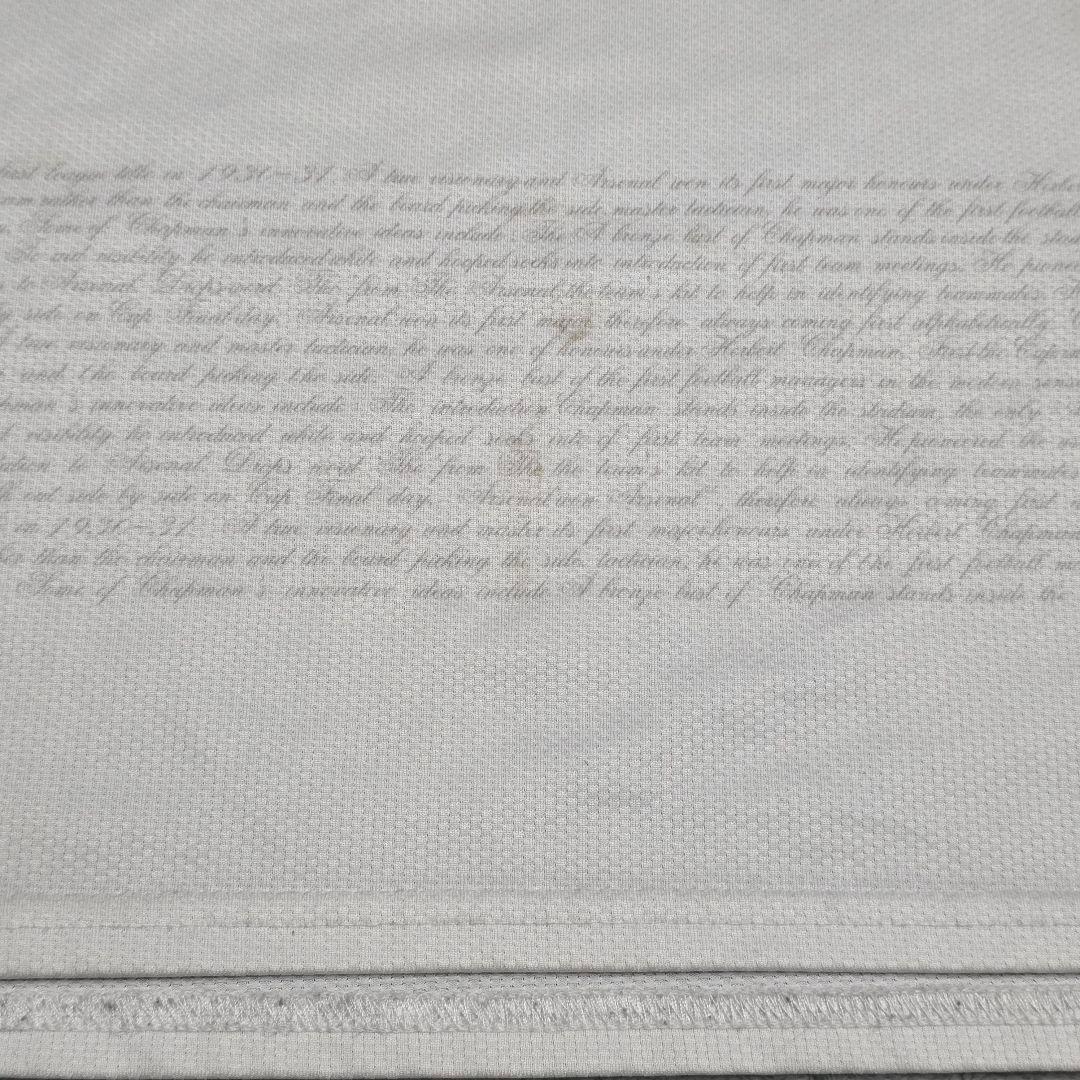 first league title in 1930-31. A true visionary and Arsenal won its first major honours under Herbe
rather than the chairman and the board picking the side, master tactician, he was one of the first football
Some of Chapman's innovative ideas include: The A bronze bust of Chapman stands inside the stad
To aid visibility he introduced white and hooped socks into introduction of first team meetings. He pioneer
to Arsenal Drops word 'The' from 'The Arsenal' the team's kit to help in identifying teammates.
side on Cup Final day. Arsenal won its first major therefore always coming first alphabetically.
true visionary and master tactician, he was one of honours under Herbert Chapman, first the
and the board picking the side. A bronze bust of the first football managers in the modern sense
innovative ideas include: The introduction Chapman stands inside the stadium, the only
visibility he introduced white and hooped socks into of first team meetings. He pioneered the
to Arsenal Drops word 'The' from 'The the team's kit to help in identifying teammates
out side by side on Cup Final day. Arsenal won Arsenal", therefore always coming first
in 1930-31. A true visionary and master its first major honours under Herbert Chapman
than the chairman and the board picking the side. tactician, he was one of the first football
Some of Chapman's innovative ideas include A bronze bust of Chapman stands inside the